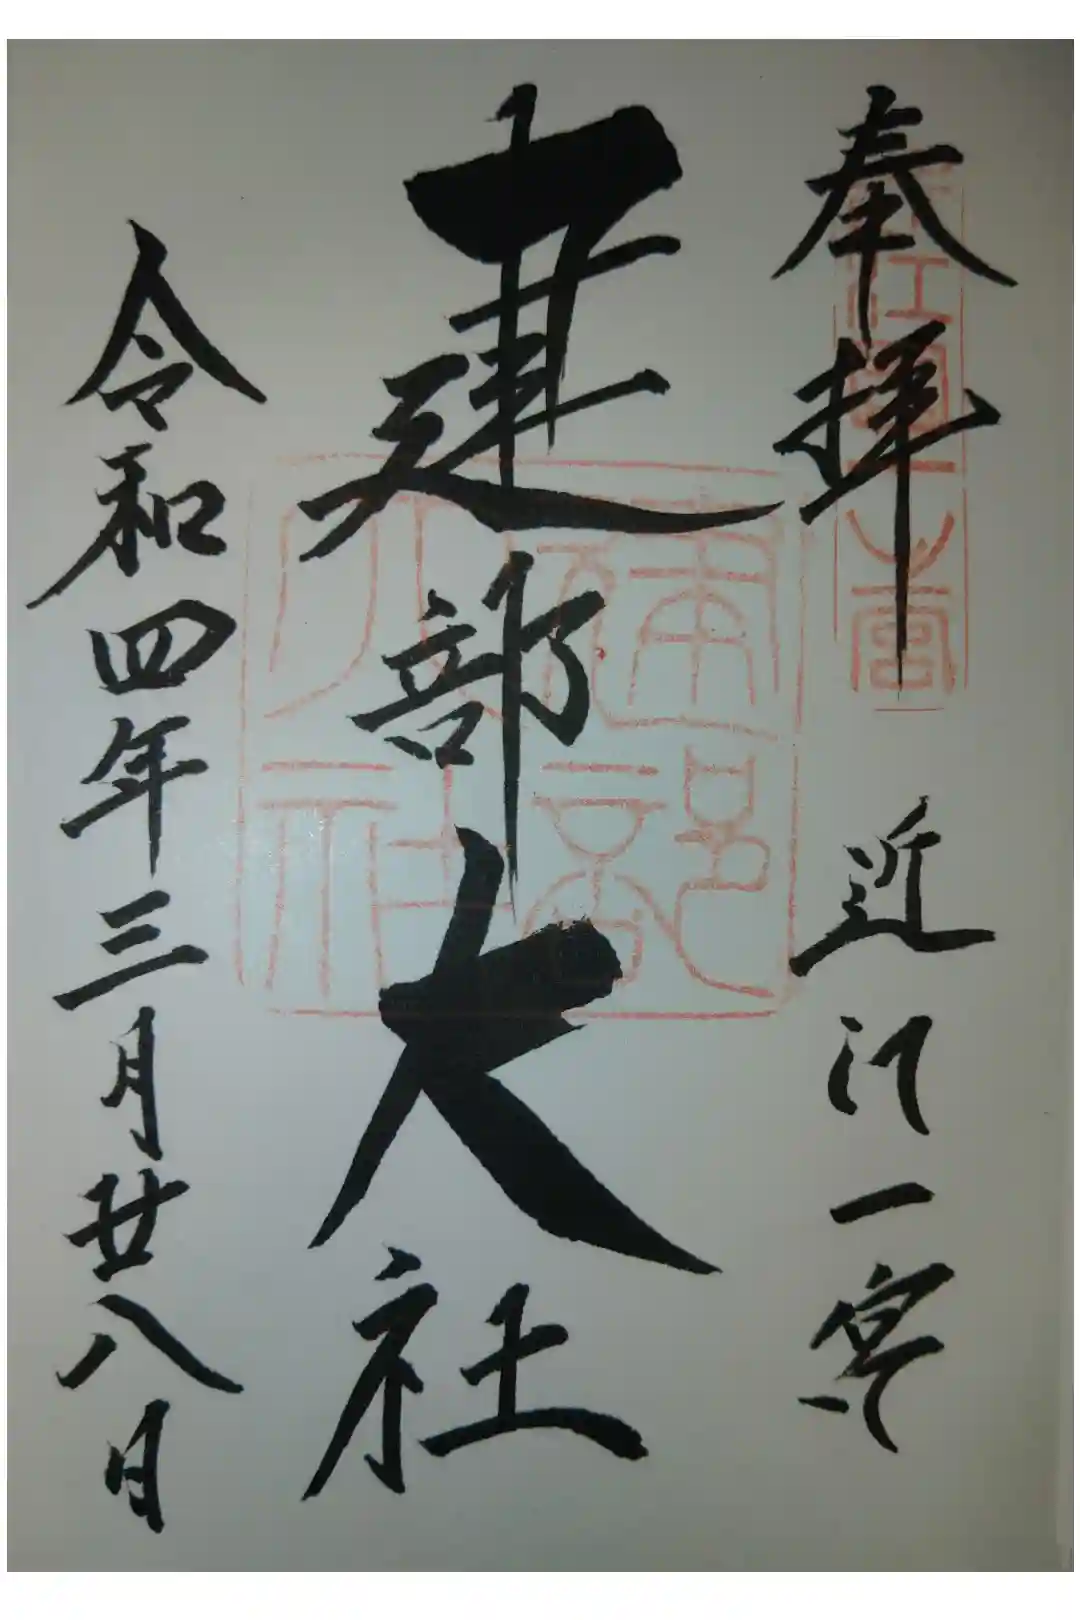 奉拝 近江一宮
近江國一之宮
建部大社
建部大社
令和四年三月廿八日